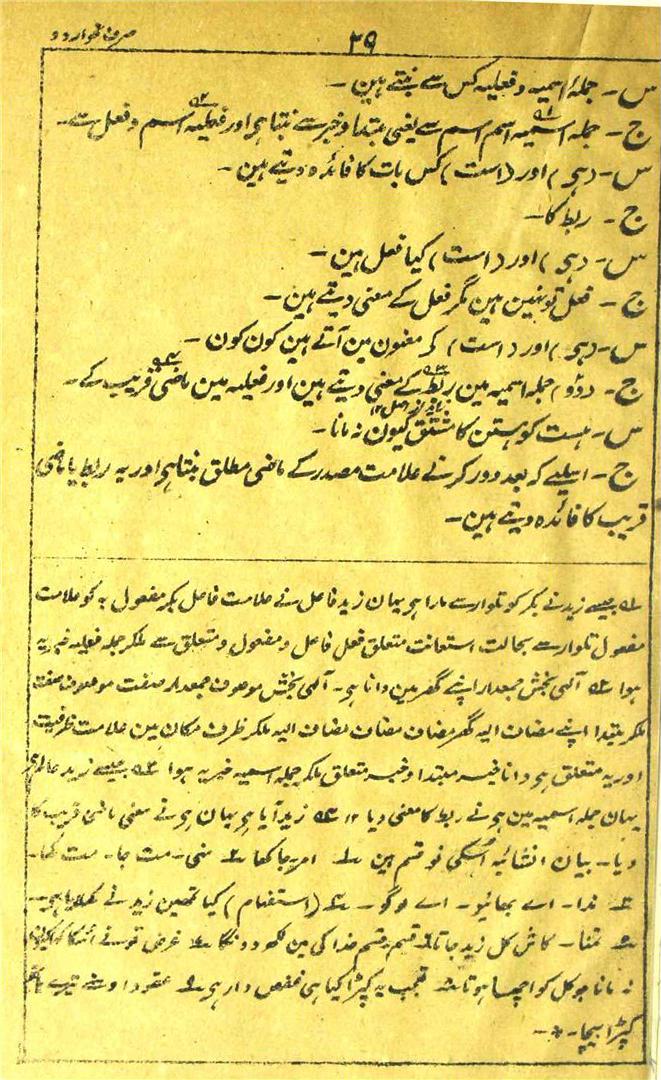 ۳۹
صرف نحو اردو
س۔ جملۂ اسمیہ و فعلیہ کس سے بنتے ہین۔
ج۔ جملہ اسمیہ اسم اسم سے یعنی مبتدا و خبر سے بنتا ہی اور فعلیہ اسم و فعل سے۔
س۔ (ہی) اور (است) کس بات کا فائدہ دیتے ہین۔
ج۔ ربط کا۔
س۔ (ہی) اور (است) کیا فعل ہین۔
ج۔ فعل تو نہین ہین مگر فعل کے معنی دیتے ہین۔
س۔ (ہی) اور (است) کے معنون مین آتے ہین کون کون۔
ج۔ دوؤ جملہ اسمیہ مین ربط کے معنی دیتے ہین اور فعلیہ مین ماضی قریب کے۔
س۔ ہست کو ہستن کا مشتق کیون نہ مانا۔
ج۔ اسلیے کہ بعد دور کرنے علامت مصدر کے ماضی مطلق بنتا ہی اور یہ ربط یا ماضی
قریب کا فائدہ دیتے ہین۔
۵۱ جیسے زید نے بکر کو تلوار سے مارا ہی یہان زید فاعل نے علامت فاعل بکر مفعول بہ کو علامت
مفعول تلوار سے بحالت استعانت متعلق فعل فاعل و مفعول و متعلق سے ملکر جملہ فعلیہ خبریہ
ہوا ۵۲ آلہی بخش جمعدار اپنے گھر مین دانا ہی۔ آلہی بخش موصوف جمعدار صفت موصوف صفت
ملکر مبتدا اپنے مضاف الیہ گھر مضاف مضاف مضاف الیہ ملکر ظرف مکان مین علامت ظرفیت
اور یہ متعلق ہی دانا خبر مبتدا و خبر متعلق ملکر جملہ اسمیہ خبریہ ہوا ۵۳ جیسے زید عالم ہی
یہان جملہ اسمیہ مین ہی نے ربط کا معنی دیا ۱۲ ۵۴ زید آیا ہی یہان ہی نے معنی ماضی قریب کا
دیا۔ بیان انشائیہ اسکی نو قسم ہین ۱ امر جا کھا ۲ نہی۔ مت جا۔ مت کھا۔
۳ ندا۔ اے بھائیو۔ اے لوگو۔ ۴ (استفہام) کیا تمھین زید نے
۵ تمنا۔ کاش کل زید جاتا ۶ قسم۔ قسم خدا کی مین تمکو دونگا ۷ عرض تو نے اسکا
نہ مانا جو کل کو اچھا ہوتا ۸ تعجب یہ کپڑا کیا ہی ۹ عقود
کپڑا بیچا۔